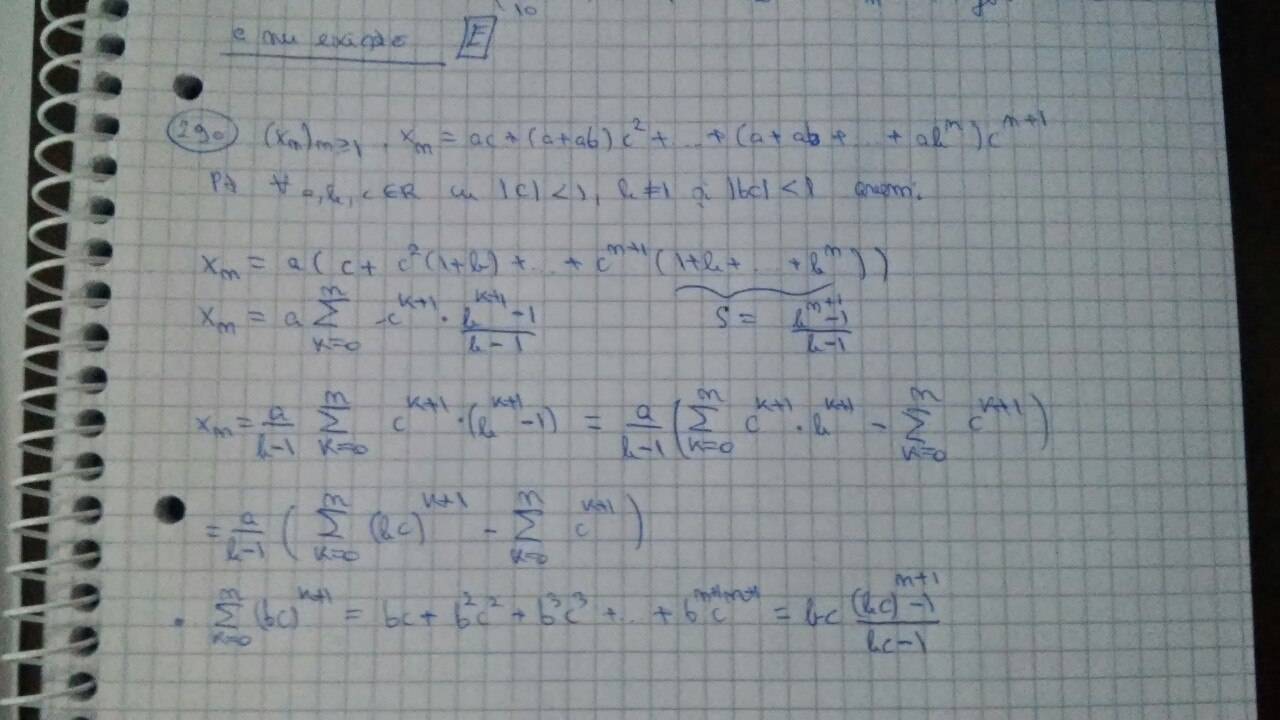 10
c nu există E
290 (xₙ)ₙ≥1, xₙ = ac + (a+ab)c² + ... + (a + ab + ... + abⁿ)cⁿ⁺¹
Pt ∀ a,b,c∈R cu |c| < 1, b≠1 și |bc| < 1 avem:
xₙ = a(c + c²(1+b) + ... + cⁿ⁺¹(1+b+ ... +bⁿ))
xₙ = a ∑ₖ₌₀ⁿ cᵏ⁺¹ · (bᵏ⁺¹-1)/(b-1) S = (bⁿ⁺¹-1)/(b-1)
xₙ = a/(b-1) ∑ₖ₌₀ⁿ cᵏ⁺¹·(bᵏ⁺¹-1) = a/(b-1) (∑ₖ₌₀ⁿ cᵏ⁺¹·bᵏ⁺¹ - ∑ₖ₌₀ⁿ cᵏ⁺¹)
= a/(b-1) (∑ₖ₌₀ⁿ (bc)ᵏ⁺¹ - ∑ₖ₌₀ⁿ cᵏ⁺¹)
• ∑ₖ₌₀ⁿ (bc)ᵏ⁺¹ = bc + b²c² + b³c³ + ... + bⁿ⁺¹cⁿ⁺¹ = bc ((bc)ⁿ⁺¹-1)/(bc-1)